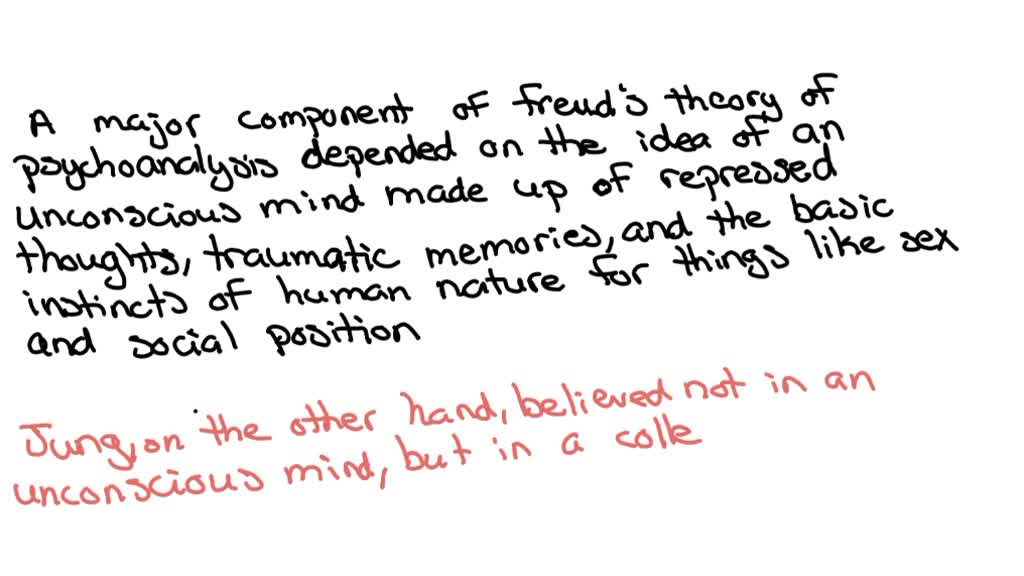 A major component of freud's theory of
psychoanalysis depended on the idea of an
unconscious mind made up of repressed
thoughts, traumatic memories, and the basic
instincts of human nature for things like sex
and social position
Jung, on the other hand, believed not in an
unconscious mind, but in a colle